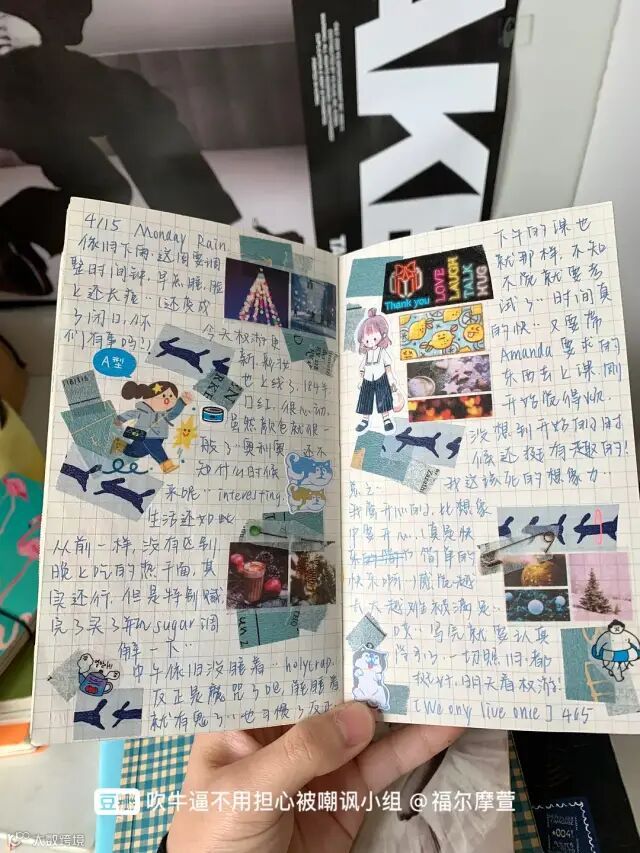 AKE
4/15 Monday Rain.
依旧下雨.这周要调
整时间钟.早点睡.脸
上还长痘
了闭口.你
们有事吗?!
今天权游更
新.粉妆
也上线了.184年
口红.很心动.
虽然颜色就很一
般了..奥利奥 还不
知什么时候
来呢..interesting.
生活还如此
从前一样,没有区别.
晚上吃的热干面,其
实还行.但是特别腻
完了买了并in sugar调
解一下..
中午依旧没睡着..holy crap.
反正是魔咒了De,能睡着
就有鬼了..也习惯了反正
A型
Thank you
LOVE
LAUGH
TALK
HUG
下午的课也
就那样,不知
不觉就要考
试了..时间真
的快..又要带
Amanda要求的
东西去上课.刚
开始觉得烦
没想到开始的时
候还挺有趣的!
我这该死的想象力..
总之
我蛮开心的.比想象
中要开心..真是快
乐的简单的
快乐啊..感觉越
长大越难被满足..
哎..写完就要认真
学习了..一切照旧.都
挺好.明天看权游!
[We only live once] 465
豆瓣 吹牛逼不用担心被嘲讽小组 @福尔摩萱
大数跨境